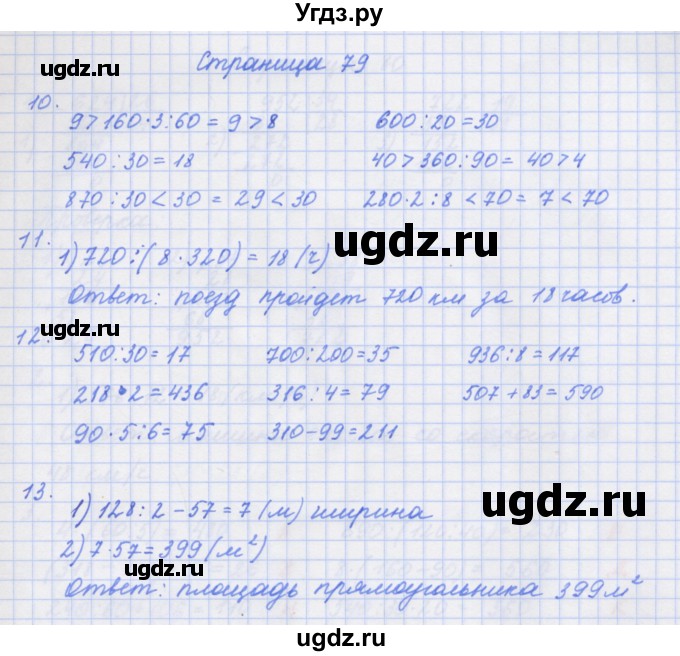 Угдз.ру
Страница 79
ugdz.ru ugdz.ru
10.
9>160·3:60 = 9>8 600:20=30
540:30=18 40>360:90= 40>4
870:30<30 = 29<30 280·2:8<70= 7<70
11.
ugdz.ru
1) 720:(8·320) = 18 (ч)
Ответ: поезд пройдет 720 км за 18 часов.
ugdz.ru
12.
510:30=17 700:200=35 936:8=117
218·2=436 316:4=79 507+83=590
90·5:6=75 310-99=211
13.
ugdz.ru
1) 128:2-57=7 (м) ширина
2) 7·57=399 (м²)
ugdz.ru
Ответ: площадь прямоугольника 399м²
ugdz.ru